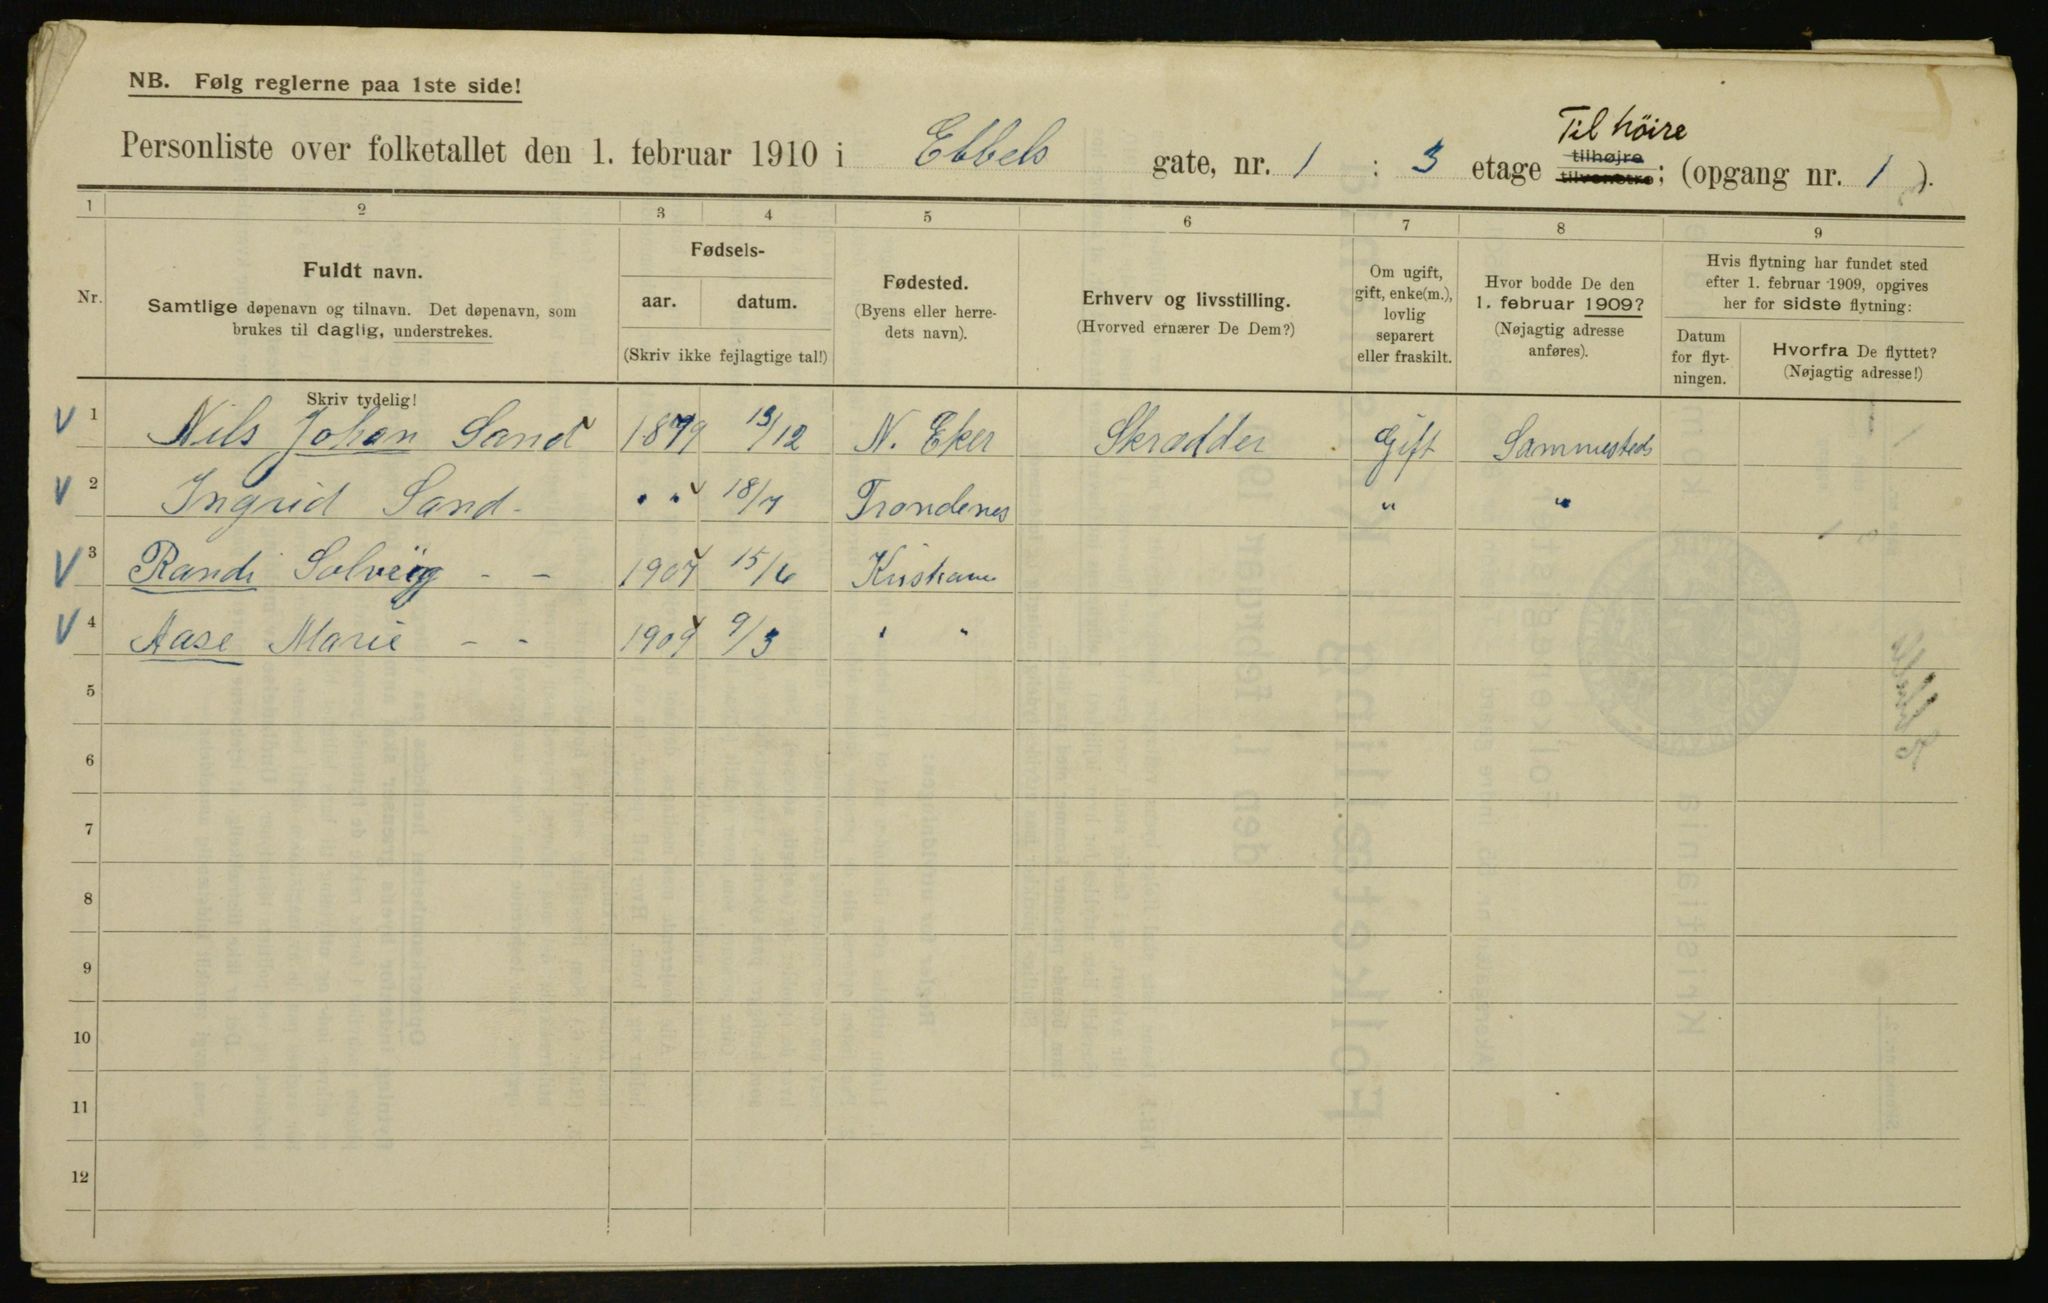 NB. Følg reglerne paa 1ste side!
Til höire
Personliste over folketallet den 1. februar 1910 i Ebbels gate, nr. 1 : 3 etage tilhøjre tilvenstre; (opgang nr. 1).
1 2 3 4 5 6 7 8 9
Nr.
Fuldt navn.
Samtlige døpenavn og tilnavn. Det døpenavn, som
brukes til daglig, understrekes.
Skriv tydelig!
Fødsels-
aar. datum.
(Skriv ikke fejlagtige tal!)
Fødested.
(Byens eller herre-
dets navn).
Erhverv og livsstilling.
(Hvorved ernærer De Dem?)
Om ugift,
gift, enke(m.),
lovlig
separert
eller fraskilt.
Hvor bodde De den
1. februar 1909?
(Nøjagtig adresse
anføres).
Hvis flytning har fundet sted
efter 1. februar 1909, opgives
her for sidste flytning:
Datum
for flyt-
ningen.
Hvorfra De flyttet?
(Nøjagtig adresse!)
V 1 Nils Johan Sand 1879 13/12 N. Eker Skrædder Gift Sammesteds
V 2 Ingrid Sand - " " 18/7 Trondenes " "
V 3 Randi Solveig - - 1907 15/6 Kristiania
V 4 Aase Marie - - 1909 9/3 " "
5
6
7
8
9
10
11
12